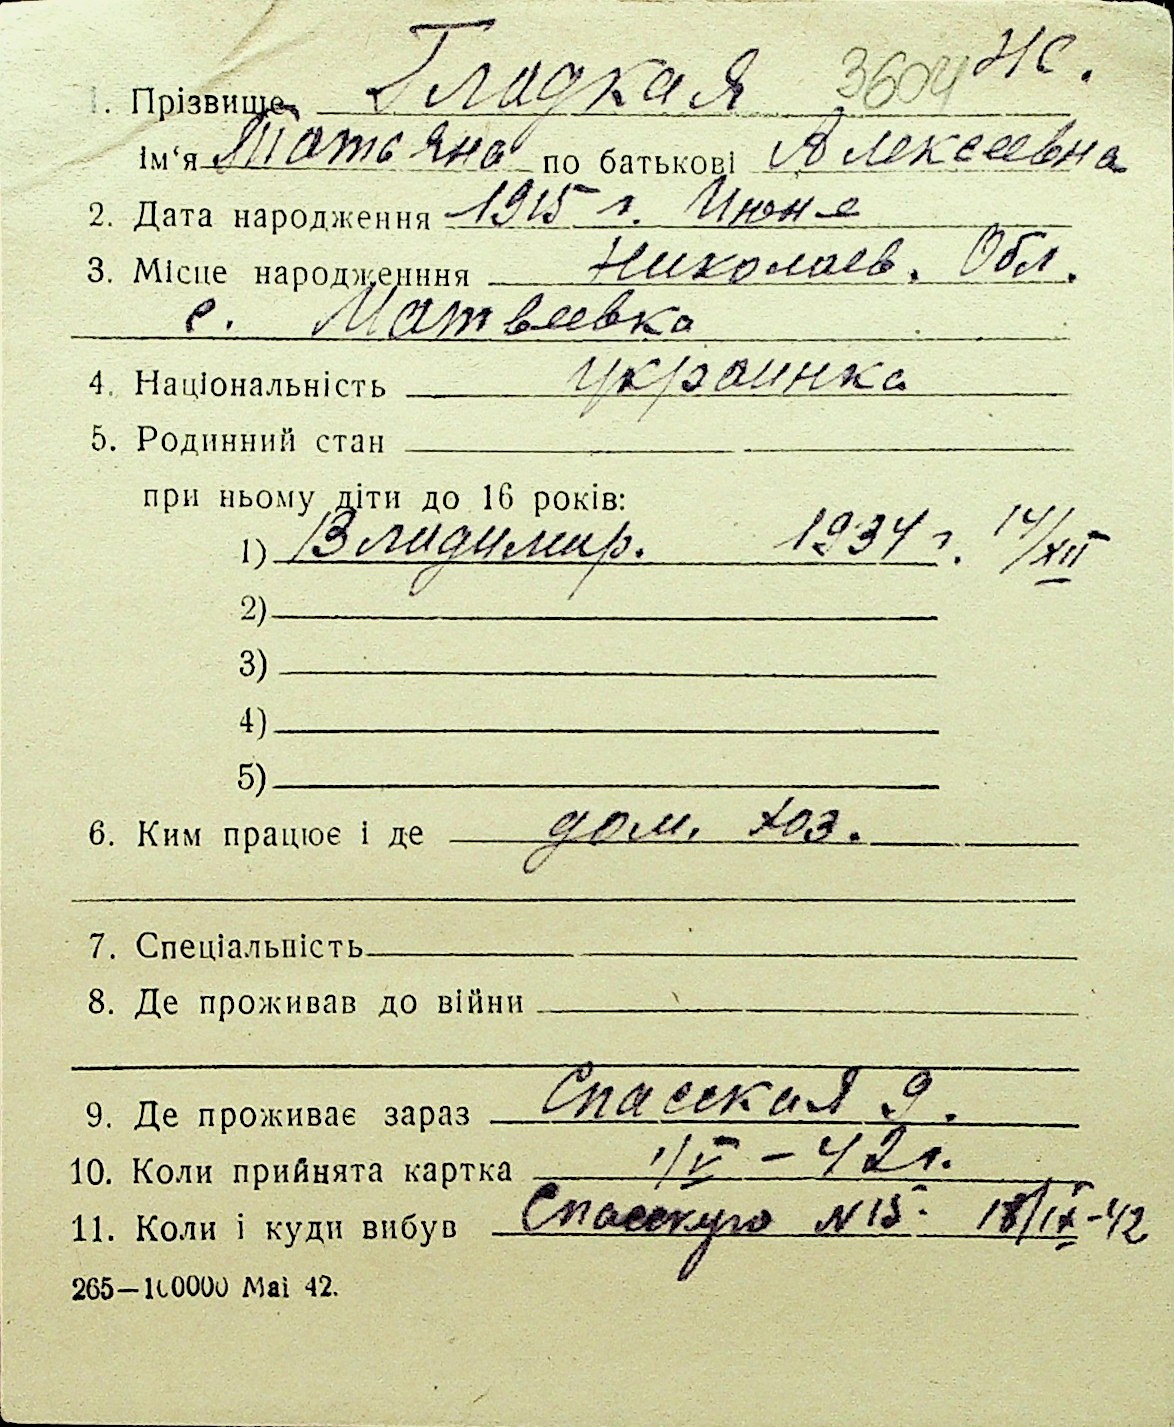 1. Прізвище Гладкая 3604 Нс.
Ім'я Татьяна по батькові Алексеевна
2. Дата народження 1915 г. Июне
3. Місце народженння Николаев. Обл.
с. Матвеевка
4. Національність украинка
5. Родинний стан
при ньому діти до 16 років:
1) Владимир. 1934 г. 14/XII
2)
3)
4)
5)
6. Ким працює і де дом. хоз.
7. Спеціальність
8. Де проживав до війни
9. Де проживає зараз Спасская 9.
10. Коли прийнята картка 1/V – 42 г.
11. Коли і куди вибув Спасскую N 15. 18/IX-42
265—100000 Mai 42.